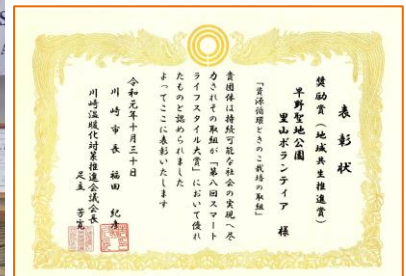 表彰状
奨励賞(地域共生推進賞)
早野聖地公園
里山ボランティア 様
「資源循環ときのこ栽培の取組」
貴団体は持続可能な社会の実現へ尽
力されその取組が「第八回スマート
ライフスタイル大賞」において優れ
たものと認められました
よってここに表彰いたします
令和元年十月三十日
川崎市長 福田 紀彦
川崎温暖化対策推進会議会長
足立 芳寛